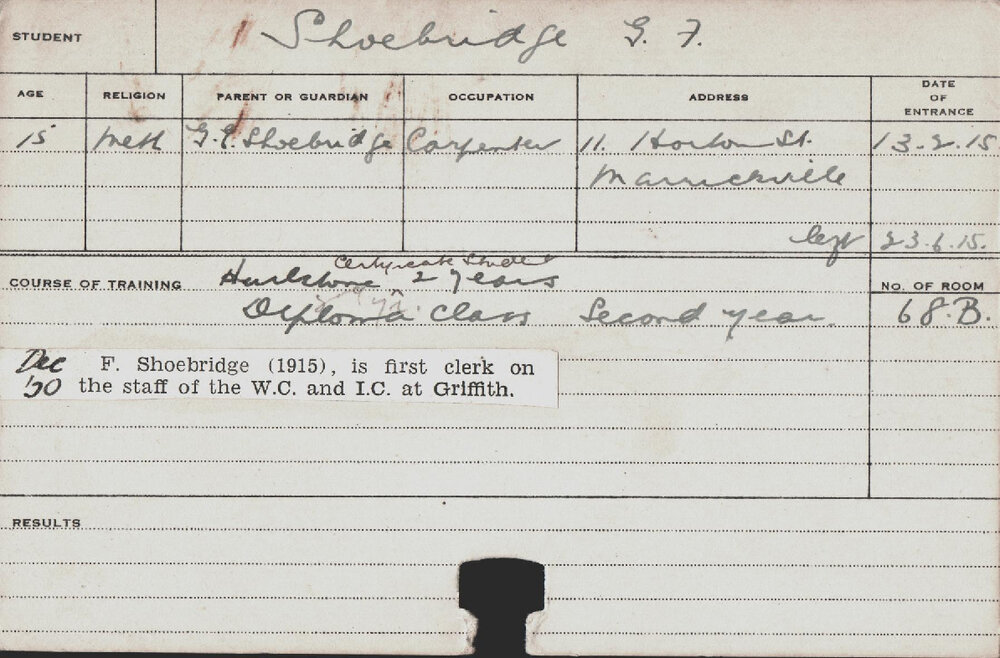 STUDENT Shoebridge G. F.
AGE RELIGION PARENT OR GUARDIAN OCCUPATION ADDRESS DATE OF ENTRANCE
15 Meth G. E. Shoebridge Carpenter 11. Horton St. 13.2.15
Marrickville
left 23.6.15.
Certificate Student
COURSE OF TRAINING Hurlstone 2 years No. OF ROOM
Diploma Class Second year. 68.B.
Dec F. Shoebridge (1915), is first clerk on
'20 the staff of the W.C. and I.C. at Griffith.
RESULTS